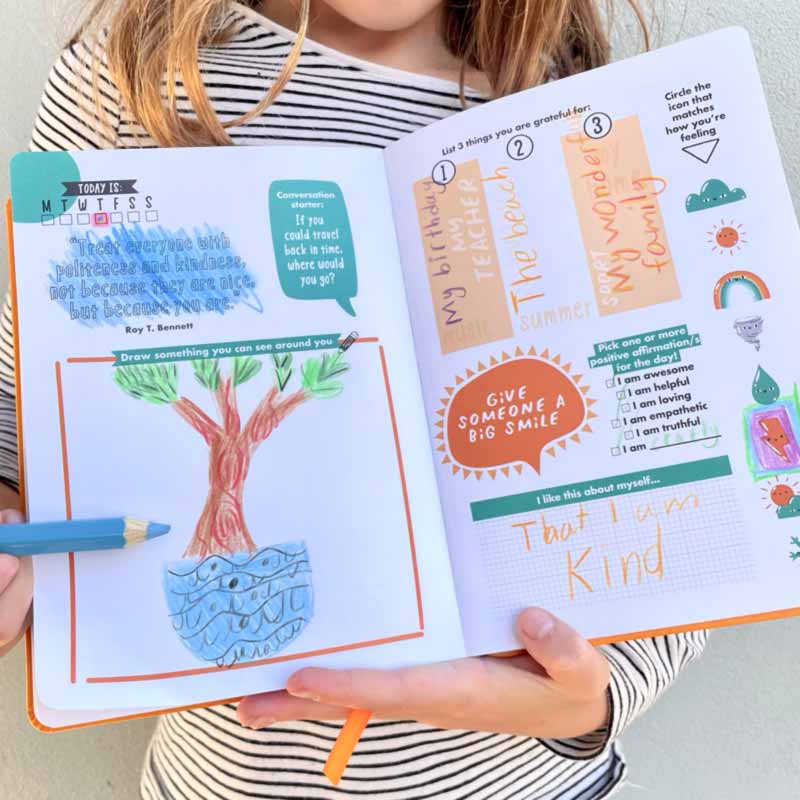 TODAY IS:
M T W T F S S
"Treat everyone with
politeness and kindness,
not because they are nice,
but because you are.
Roy T. Bennett
Conversation
starter:
If you
could travel
back in time,
where would
you go?
Draw something you can see around you
List 3 things you are grateful for:
1
2
3
My birthday
MY
TEACHER
music
The beach
summer
My wonderful
family
sport
Circle the
icon that
matches
how you're
feeling
GIVE
SOMEONE A
BIG SMILE
Pick one or more
positive affirmation/s
for the day!
I am awesome
I am helpful
I am loving
I am empathetic
I am truthful
I am crafty
I like this about myself...
That I am
Kind